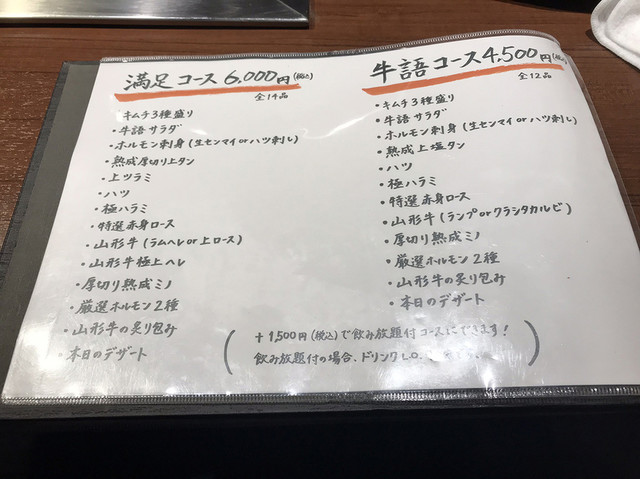 満足コース 6,000円(税込)
全14品
・キムチ3種盛り
・牛語サラダ
・ホルモン刺身(生センマイorハツ刺し)
・熟成厚切り上タン
・上ツラミ
・ハツ
・極ハラミ
・特選赤身ロース
・山形牛(ラムヘレor上ロース)
・山形牛極上ヘレ
・厚切り熟成ミノ
・厳選ホルモン2種
・山形牛の炙り包み
・本日のデザート
牛語コース4,500円(税込)
全12品
・キムチ3種盛り
・牛語サラダ
・ホルモン刺身(生センマイorハツ刺し)
・熟成上塩タン
・ハツ
・極ハラミ
・特選赤身ロース
・山形牛(ランプorクラシタカルビ)
・厚切り熟成ミノ
・厳選ホルモン2種
・山形牛の炙り包み
・本日のデザート
(+1,500円(税込)で飲み放題付コースにできます!
飲み放題付の場合、ドリンクL.O.)